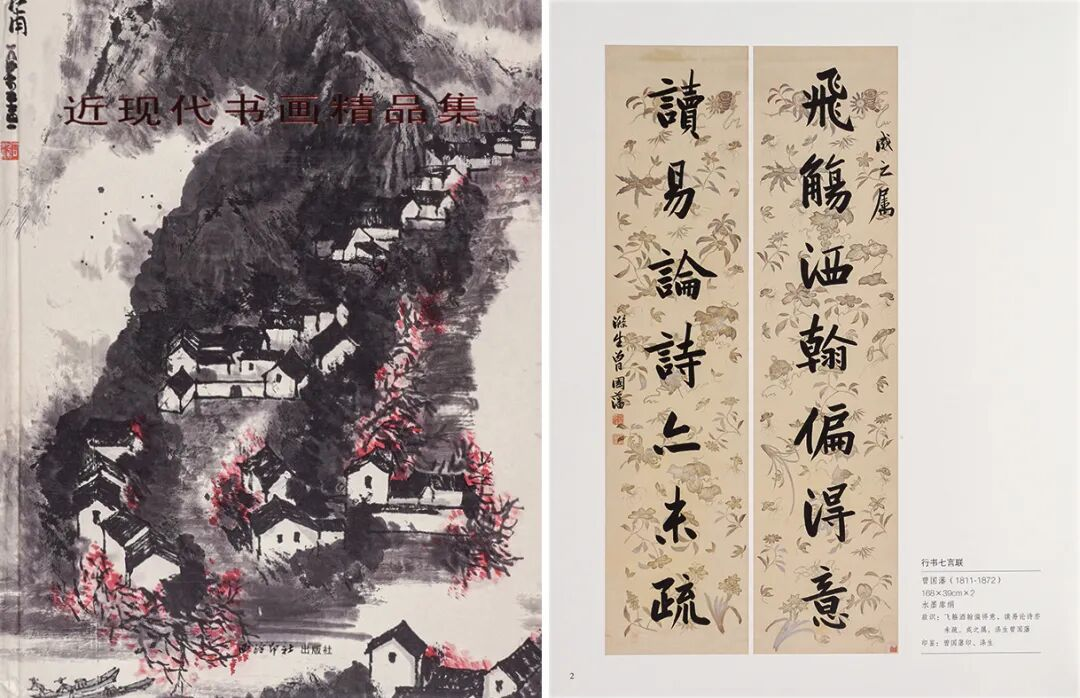 近现代书画精品集
西泠印社 出版社
飛觴洒翰偏得意
成之属
讀易論詩亦未疏
滌生曾國藩
行书七言联
曾国藩（1811-1872）
168×39cm×2
水墨库绢
款识：飞觞洒翰偏得意、读易论诗亦
未疏。成之属，涤生曾国藩
印鉴：曾国藩印、涤生
2